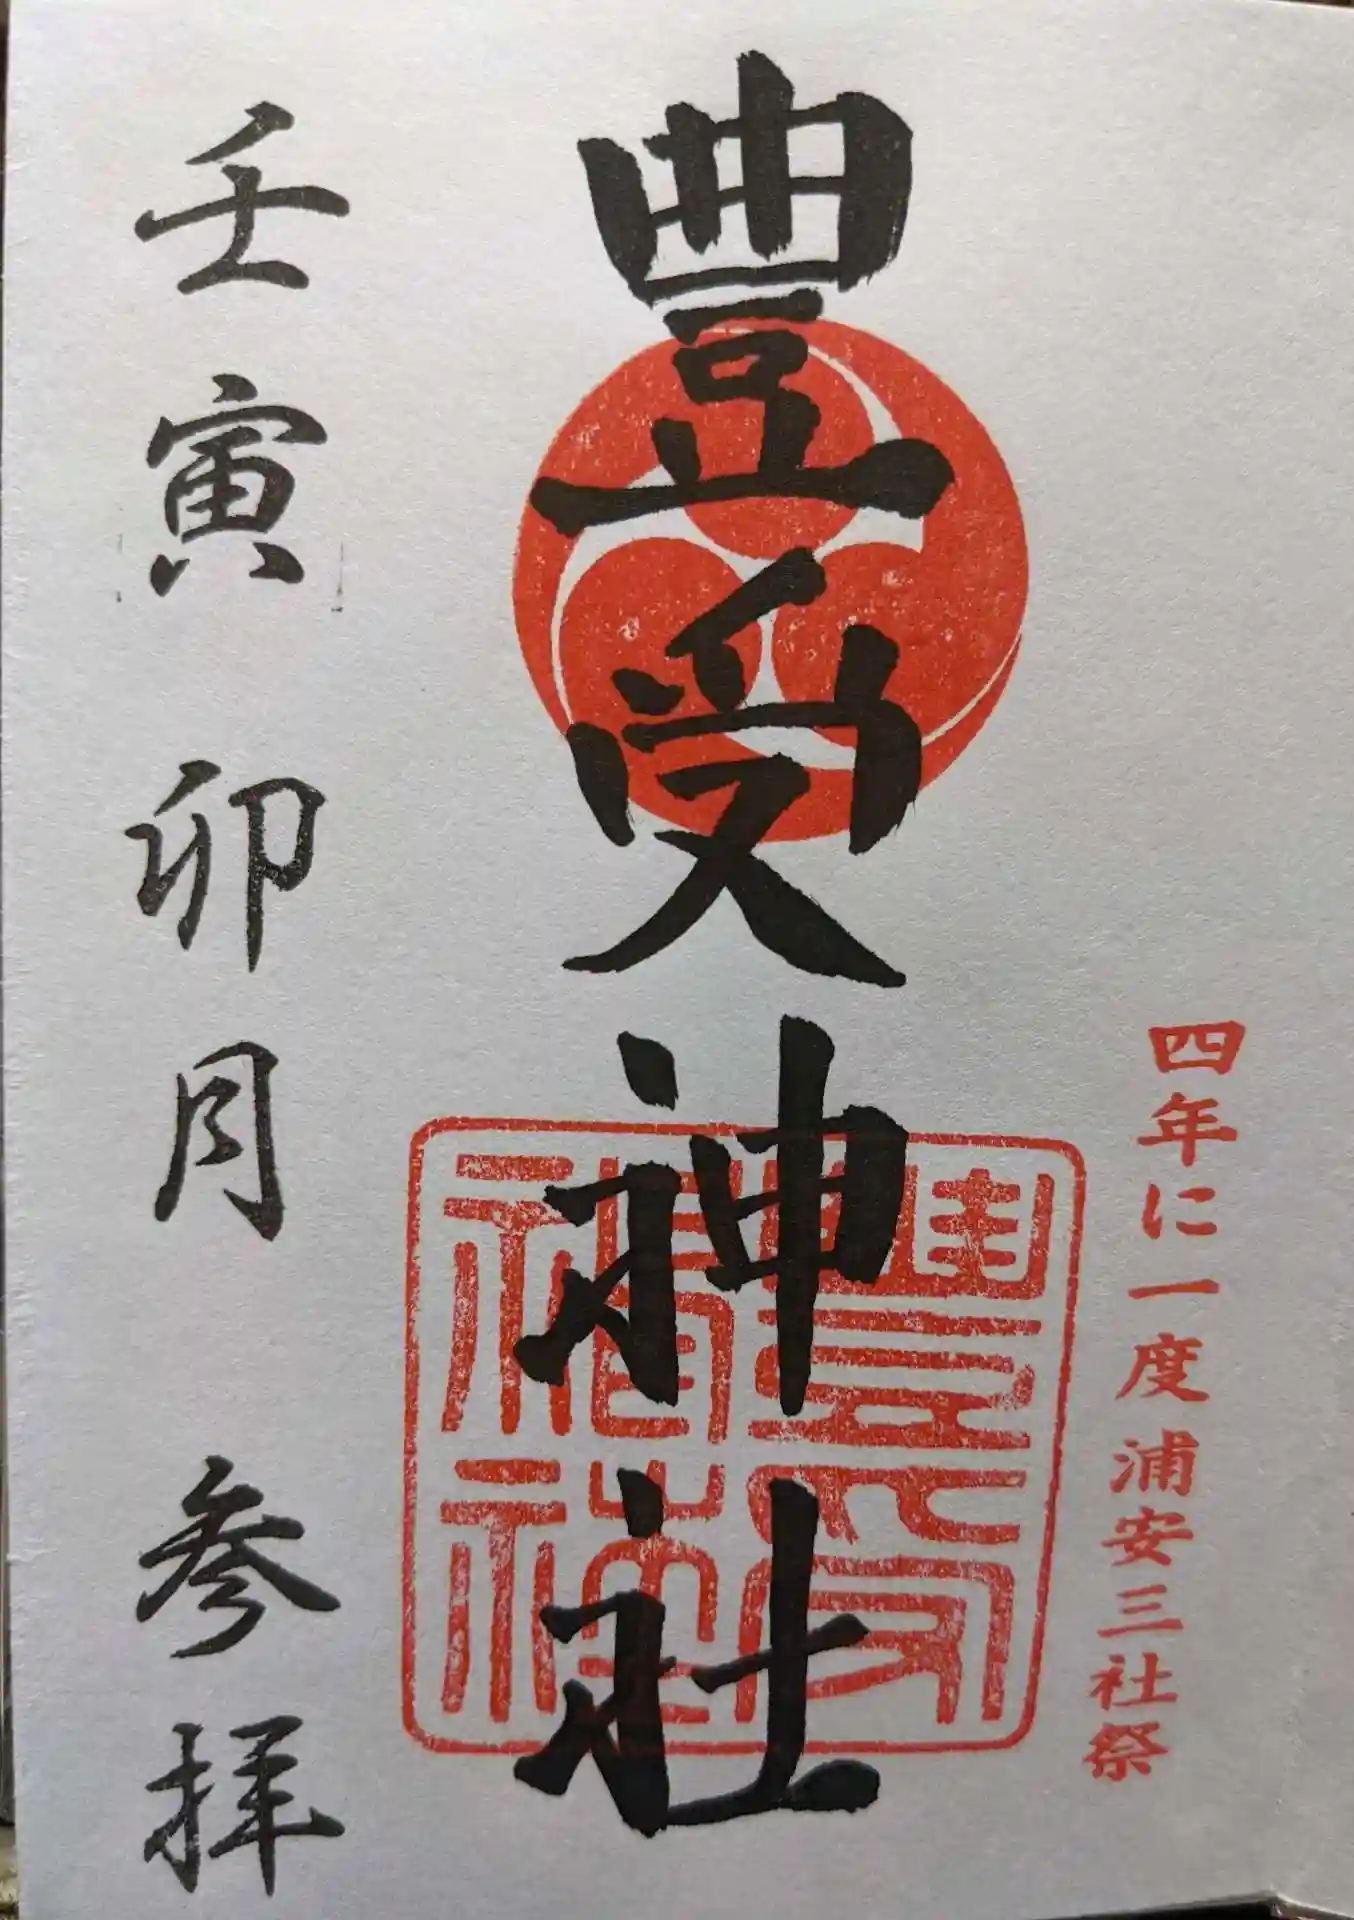 四年に一度浦安三社祭
豊受神社
壬寅 卯月 参拝